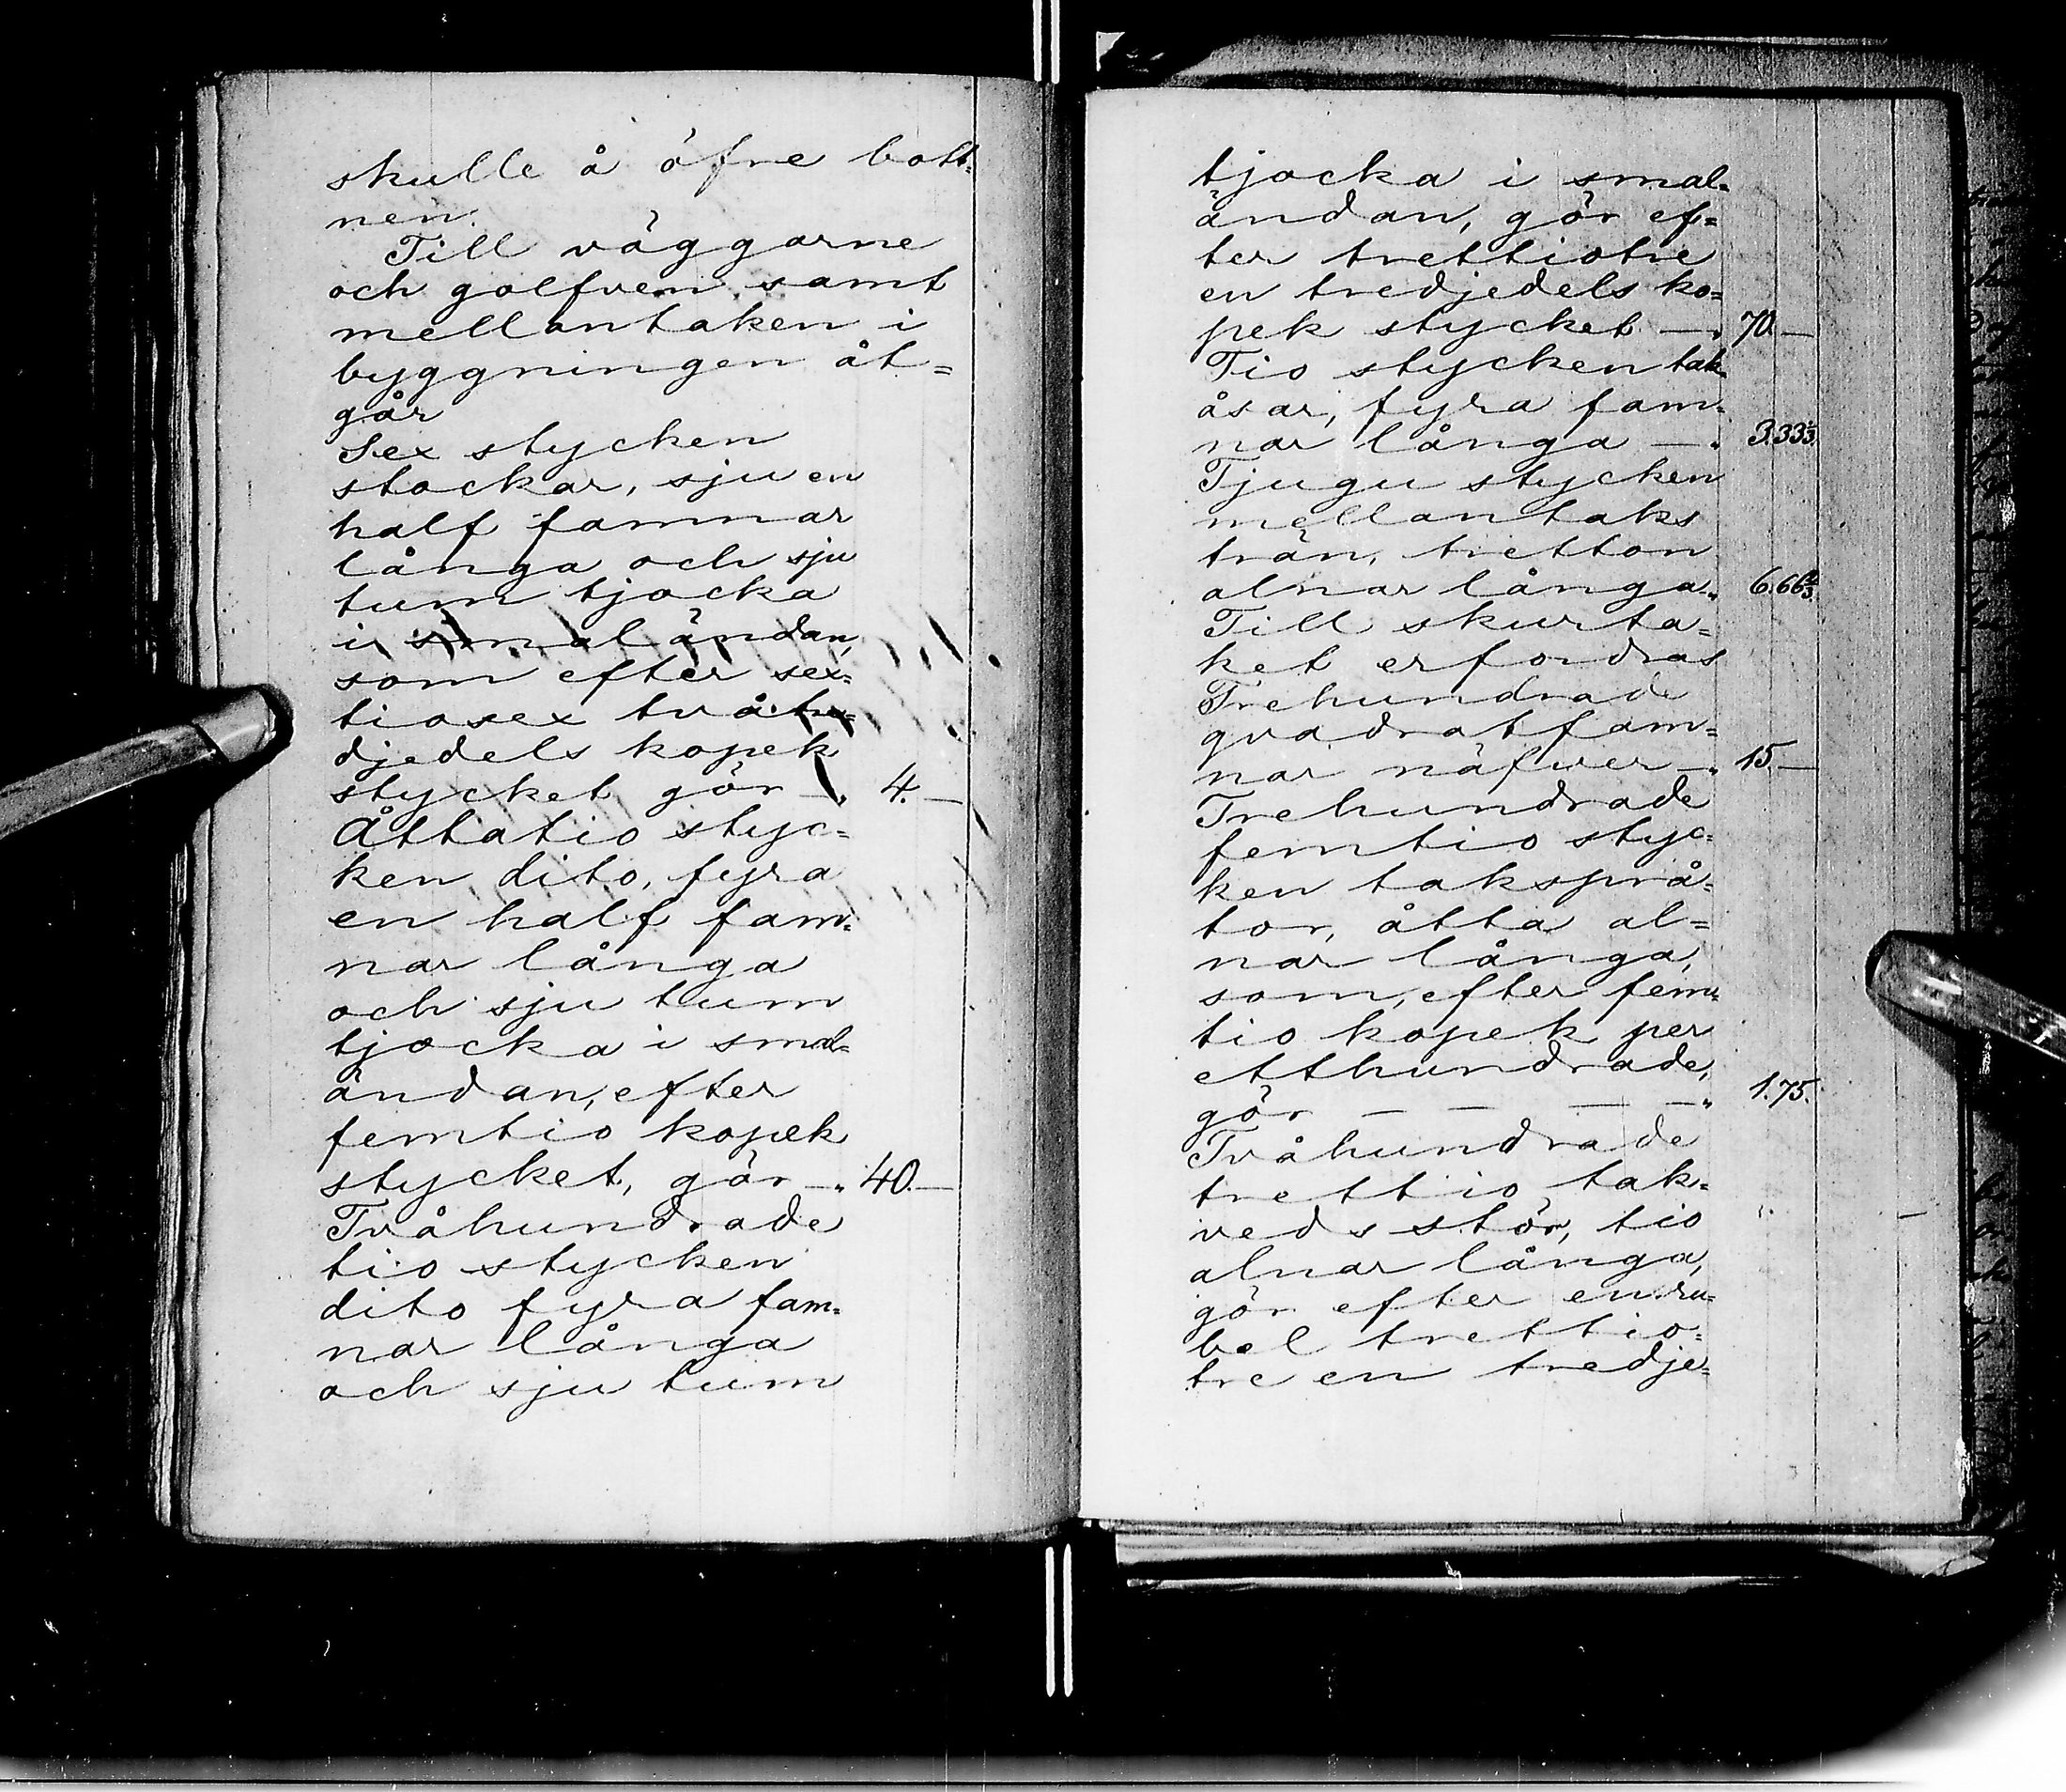 skulle å öfre bott=
nen.
Till väggarne
och golfven samt
mellantaken i
byggningen åt=
går
Sex stycken
stockar, sju en
half famnar
långa och sju
tum tjocka
i smaländan,
som efter sex=
tiosex tvåtre=
djedels kopek
stycket gör —„ 4.—
Åttatio styc=
ken dito, fyra
en half fam=
nar långa
och sju tum
tjocka i smal=
ändan, efter
femtio kopek
stycket, gör —„ 40.—
Tvåhundrade
tio stycken
dito fyra fam=
nar långa
och sju tum
tjocka i smal=
ändan, gör ef=
ter trettiotre
en tredjedels ko=
pek stycket —„ 70.—
Tio stycken tak=
åsar, fyra fam=
nar långa —„ 3.33⅓.
Tjugu stycken
mellantaks
trän, tretton
alnar långa„ 6.66⅔.
Till skurta=
ket erfordras
Trehundrade
qvadratfam=
nar näfver —„ 15.—
Trehundrade
femtio styc=
ken taksprå=
tor, åtta al=
nar långa,
som, efter fem=
tio kopek per
etthundrade,
gör — — — —„ 1.75.
Tvåhundrade
trettio tak=
veds stör, tio
alnar långa,
gör efter en ru=
bel trettio=
tre en tredje=